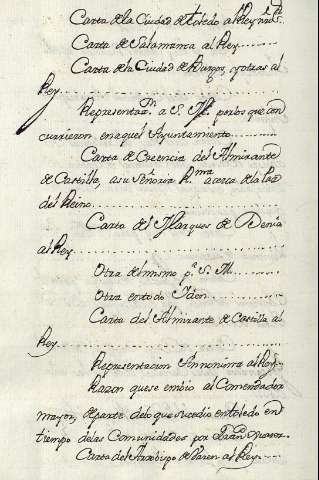 Carta de la Ciudad de toledo al Rey nrô. S.r
Carta de Salamanca al Rey
Carta de la Ciudad de Burgos, y otras al
Rey
Representaz.n a S. M. por los que con
currieron en aquel Ayuntamiento
Carta de Creencia del Almirante
de Castilla, a su Señoria R.ma acerca de la Paz
del Reino
Carta del Marques de Denia
al Rey
Otra del mismo p.a S. M.
Otra en todo Iden
Carta del Almirante de Castilla al
Rey
Representacion Annonima al Rey
Razon que se embio al Comendador
mayor, de parte de lo que sucedio en toledo en
tiempo de las Comunidades por
Carta del Arzobispo de al Rey